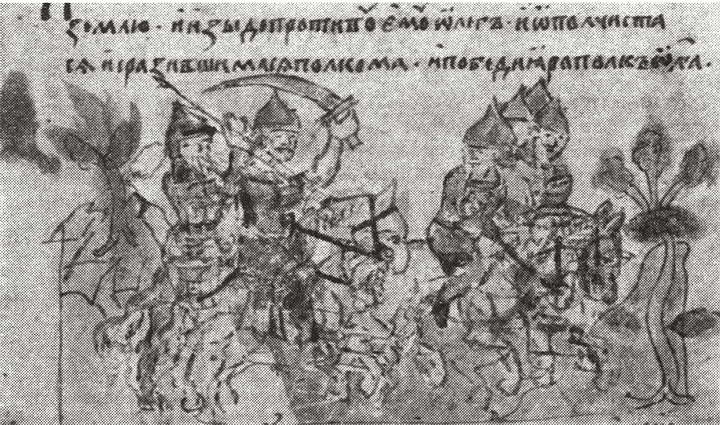 ꙁемлю · и иꙁыдо противо емѹ ѡлегъ · и ѡполчиста
сѧ и раꙁившимасѧ полкома · и победи ꙗрополкъ ѡлга ·